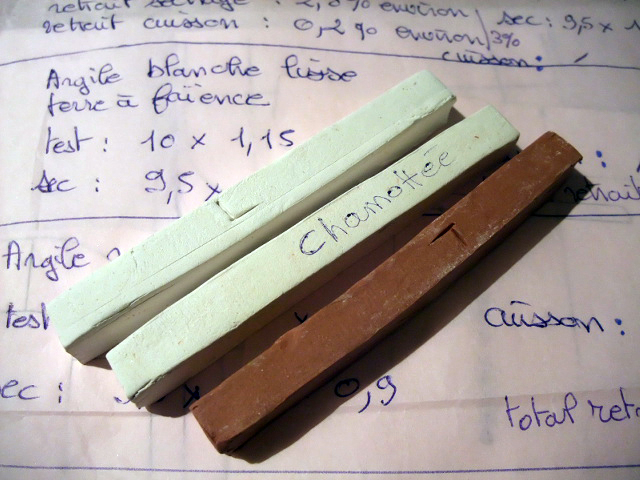 retrait séchage : 2,5% environ
retrait cuisson : 0,2% environ / 3%
sec : 9,5 x 1
cuisson :
Argile blanche lisse
terre à faïence
test : 10 x 1,15
sec : 9,5 x
Chamottée
retrait
Argile
test
cuisson :
sec :
0,9
total reta